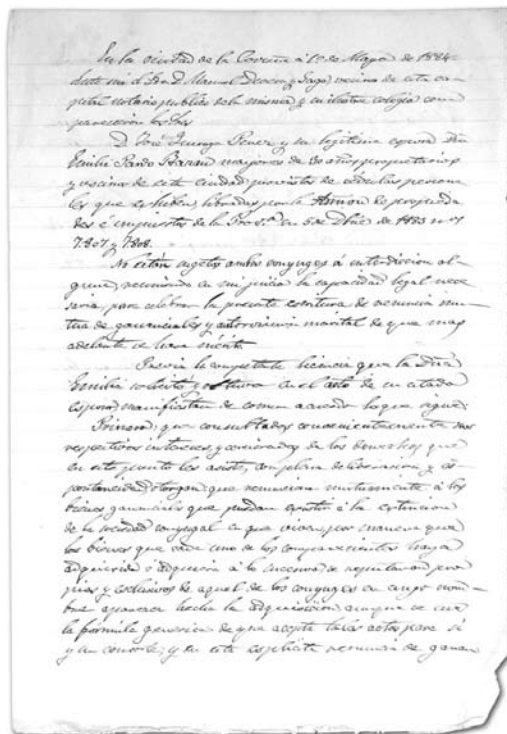 En la ciudad de la Coruña á 1º de Mayo de 1884
ante mi el Ldo D. Manuel Devesa y Gago, vecino de esta ca-
pital notario publico de la misma y su ilustre colegio com
parecieron los Sres
D. José Quiroga Perez y su legitima esposa Dña
Emilia Pardo Bazan mayores de 30 años propietarios
y vecinos de esta ciudad provistos de cédulas persona
les que exhiben, libradas por la Admon de propieda
des é impuestos de la Provª en 5 de Dbre de 1883 nºs
7.807 y 7.808.
No están sujetos ambos conyuges á interdiccion al
guna, reuniendo en mi juicio la capacidad legal nece
saria para celebrar la presente escritura de renuncia mu-
tua de gananciales y autorizacion marital de que mas
adelante se hará mérito.
Previa la competente licencia que la Dña
Emilia solicitó y obtuvo en el acto de su citado
esposo, manifiestan de comun acuerdo lo que sigue:
Primero: que consultados convenientemente sus
respectivos intereses, y cerciorados de los derechos que
en este punto les asiste, con plena deliberacion y es
pontaneidad otorgan: que renuncian mutuamente á los
bienes gananciales que puedan existir á la extincion
de la sociedad conyugal en que viven, por manera que
los bienes que cada uno de los comparecientes haya
adquirido ó adquiera á lo sucesivo se reputarán pro
pios y esclusivos de aquel de los conyuges en cuyo nom-
bre aparezca hecha la adquisicion aunque se use
la fórmula generica de que acepta tales actos para sí
y su consorte; y en este esplicita renuncia de ganan